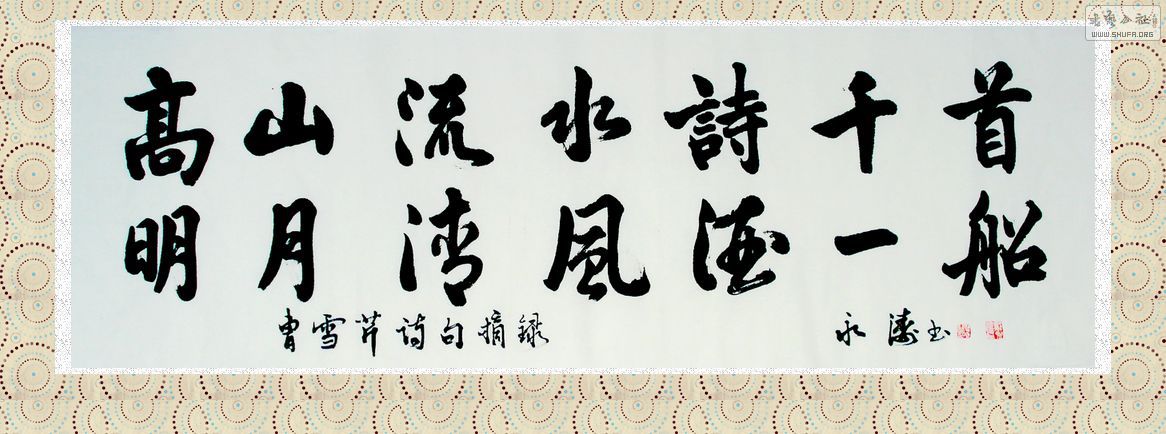 高山流水詩千首
明月清風酒一船
曹雪芹詩句摘録
永濤书
WWW.SHUFA.ORG